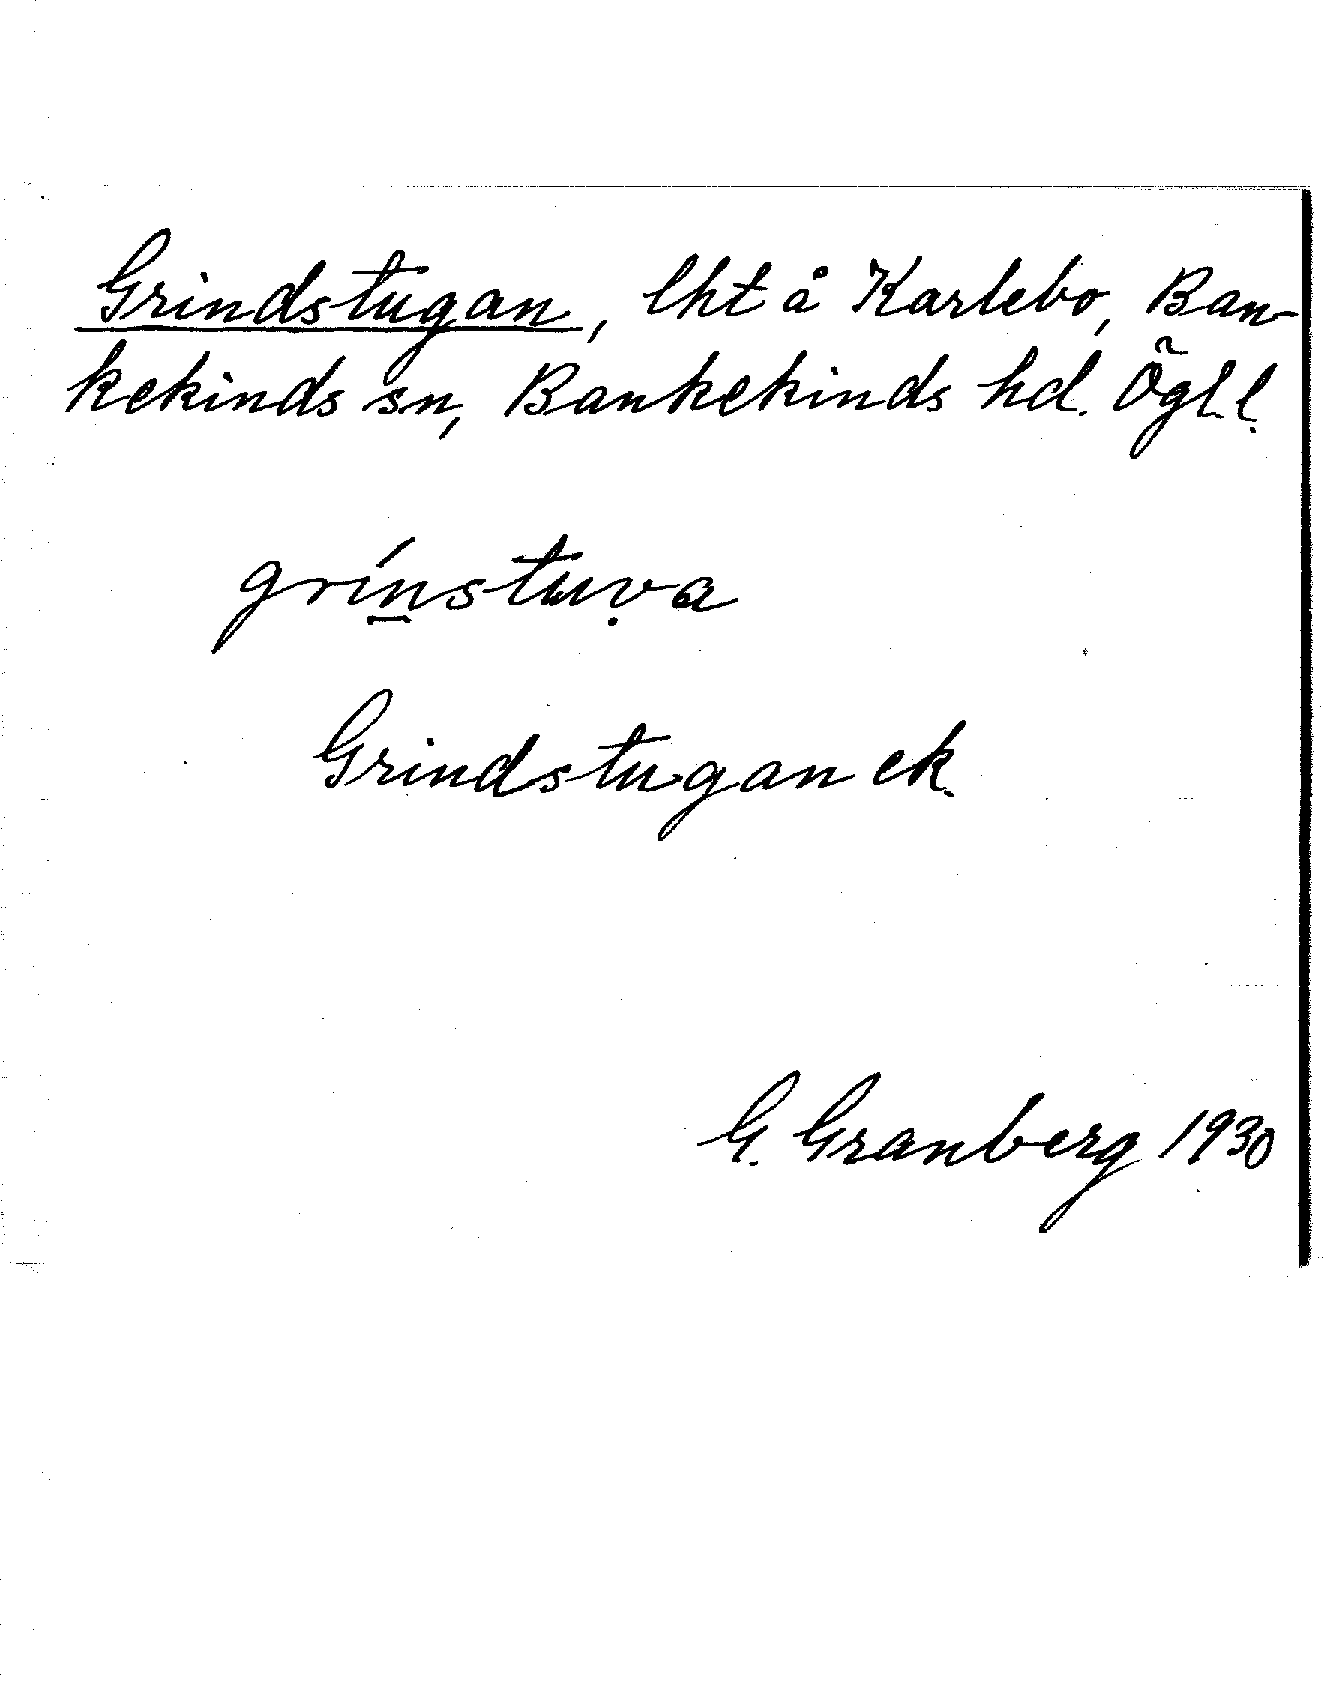 Grindstugan, lht å Karlebo, Ban-
kekinds sn, Bankekinds hd. Ögl l.
grínstuṿa
Grindstugan ek.
G. Granberg 1930